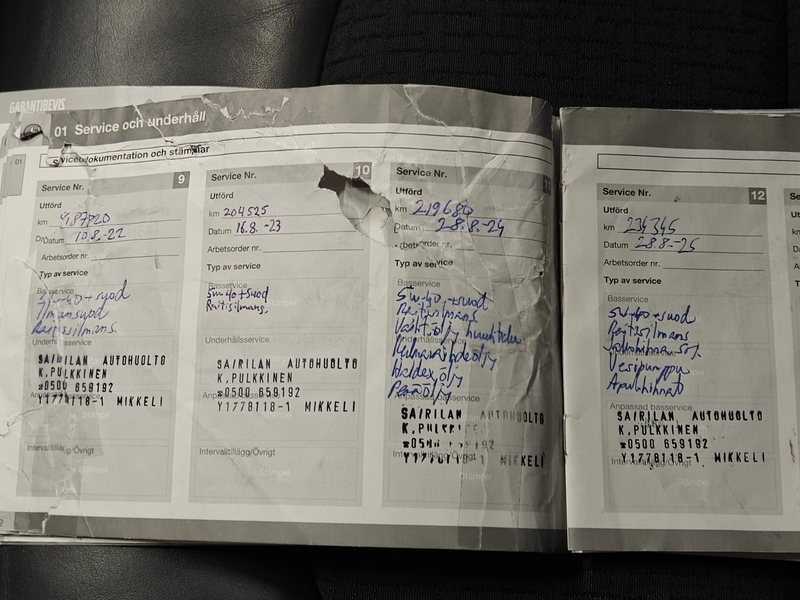 GARANTIBEVIS
01 Service och underhåll
01
Servicedokumentation och stämplar
Service Nr. 9
Utförd
km 187920
Datum 10.8.-22
Arbetsorder nr.
Typ av service
Basservice
5w-40 + suod
Ilmansuod
Raitisilmans.
Underhållsservice
SA/RILAN AUTOHUOLTO
K.PULKKINEN
☎0500 659192
Y1778118-1 MIKKELI
Anpassad basservice
Stämpel
Intervalltillägg/Övrigt
Stämpel
Service Nr. 10
Utförd
km 204525
Datum 16.8.-23
Arbetsorder nr.
Typ av service
Basservice
5w-40 + suod
Raitisilmans.
Stämpel
Underhållsservice
SA/RILAN AUTOHUOLTO
K.PULKKINEN
☎0500 659192
Y1778118-1 MIKKELI
Stämpel
Intervalltillägg/Övrigt
Stämpel
Service Nr. 11
Utförd
km 219680
Datum 28.8.-24
Arbetsorder nr.
Typ av service
Basservice
5w-40, +suod
Raitisilmans.
Vaihtöljy huuhtelu
Kulmavaihdeöljy
Haldexöljy
Peräöljy
Underhållsservice
Anpassad basservice
SA/RILAN AUTOHUOLTO
K.PULKKINEN
☎0500 659192
Y1778118-1 MIKKELI
Intervalltillägg/Övrigt
Stämpel
Service Nr. 12
Utförd
km 234345
Datum 28.8-25
Arbetsorder nr.
Typ av service
Basservice
5w-40 + suod
Raitisilmans
Jakohihna sarj.
Vesipumppu
Apulaihihnat
Underhållsservice
Anpassad basservice
SA/RILAN AUTOHUOLTO
K.PULKKINEN
☎0500 659192
Y1778118-1 MIKKELI
Intervalltillägg/Övrigt
Stämpel